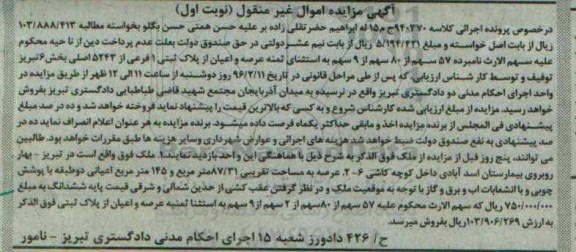 آگهی مزایده اموال غیر منقول (نوبت اول)
درخصوص پرونده اجرائی کلاسه ۹۴۰۳۷۰ج م۱۵ له ابراهیم حضرتقلی زاده بر علیه حسن همتی حسن بگلو بخواسته مطالبه ۱۰۳/۸۸۸/۴۱۳
ریال از بابت اصل خواسته و مبلغ ۵/۱۹۴/۴۳۱ ریال از بابت نیم عشر دولتی در حق صندوق دولت بعلت عدم پرداخت دین از ناحیه محکوم
علیه سهم الارث نامبرده ۵۷ سهم از ۸۰ سهم از ۹ سهم به استثنای ثمنه عرصه و اعیان از پلاک ثبتی ۱ فرعی از ۵۲۴۳ اصلی بخش ۶ تبریز
توقیف و توسط کار شناس ارزیابی که پس از طی مراحل قانونی در تاریخ ۹۶/۳/۱۱ روز دوشنبه از ساعت ۱۱ الی ۱۲ ظهر از طریق مزایده در
واحد اجرای احکام مدنی دو دادگستری تبریز واقع در نرسیده به میدان آذربایجان مجتمع شهید قاضی طباطبایی دادگستری تبریز بفروش
خواهد رسید. مزایده از مبلغ ارزیابی شده کارشناس شروع و به کسی که بالاترین قیمت را پیشنهاد نماید فروخته خواهد شد و ده در صد مبلغ
پیشنهادی فی المجلس از برنده مزایده اخذ و مابقی حداکثر یکماه فرصت داده میشود. برنده مزایده به هر عنوان اعلام انصراف نماید ده در
صد پیشنهادی به نفع صندوق دولت ضبط خواهد شد هزینه های اجرائی و عوارض شهرداری وسایر هزینه ها طبق مقررات خواهد بود. طالبین
می توانند، پنج روز قبل از مزایده از ملک فوق الذکر به شرح ذیل با هماهنگی این واحد بازدید نمایند. ۱ـ ملک فوق واقع است در تبریز - بهار
روبروی بیمارستان اسد آبادی داخل کوچه کاشی ۶-۲. عرصه به مساحت تقریبی ۸۷/۳۱ متر مربع و ۱۴۵ متر مربع اعیانی دوطبقه با پوشش
چوبی و با انشعابات آب و برق و گاز با توجه به موقعیت ملک و در نظر گرفتن عقب کشی از حدین شمالی و شرقی قیمت پایه ششدانگ به مبلغ
۷۵۰/۰۰۰/۰۰۰ ریال که سهم الارث محکوم علیه ۵۷ سهم از ۸۰سهم از ۲ سهم از ۹ سهم به استثنا ثمنه عرصه و اعیان از پلاک ثبتی فوق الذکر
به ارزش ۱۰۳/۹۰۶/۲۶۹ ریال بفروش میرسد.
ح/ ۴۲۶ دادورز شعبه ۱۵ اجرای احکام مدنی دادگستری تبریز - نامور